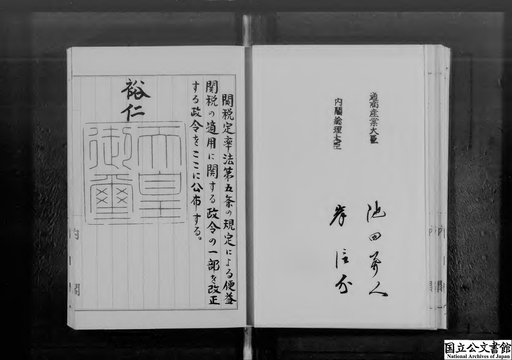 通商産業大臣
池田勇人
内閣総理大臣
岸信介
関税定率法第五条の規定による便益
関税の適用に関する政令の一部を改正
する政令をここに公布する。
裕仁
天皇
御璽
国立公文書館
National Archives of Japan